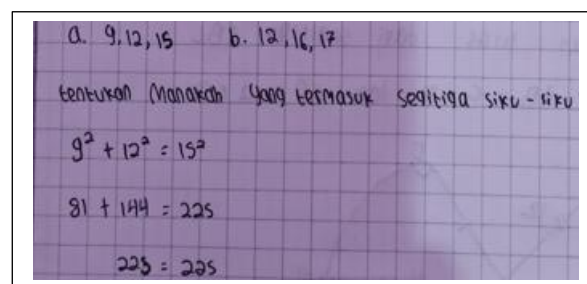 a. 9, 12, 15 b. 12, 16, 17
tentukan Manakah yang termasuk segitiga siku-siku
9² + 12² = 15²
81 + 144 = 225
225 = 225